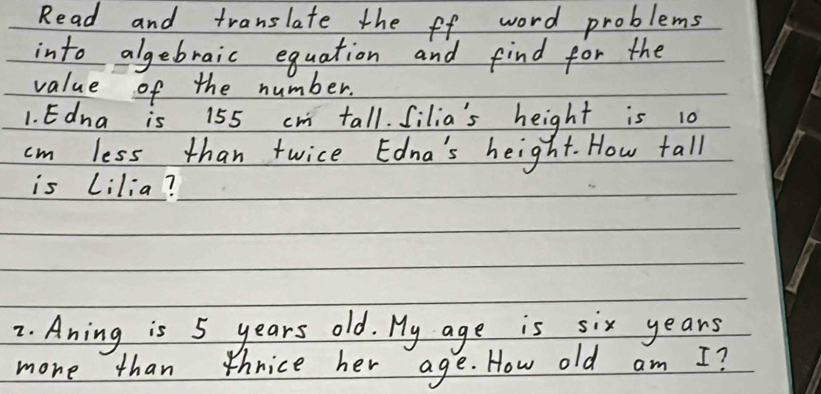 Read and translate the ff word problems
into algebraic equation and find for the
value of the number.
1. Edna is 155 cm tall. Lilia's height is 10
cm less than twice Edna's height. How tall
is Lilia?
2. Aning is 5 years old. My age is six years
more than thrice her age. How old am I?